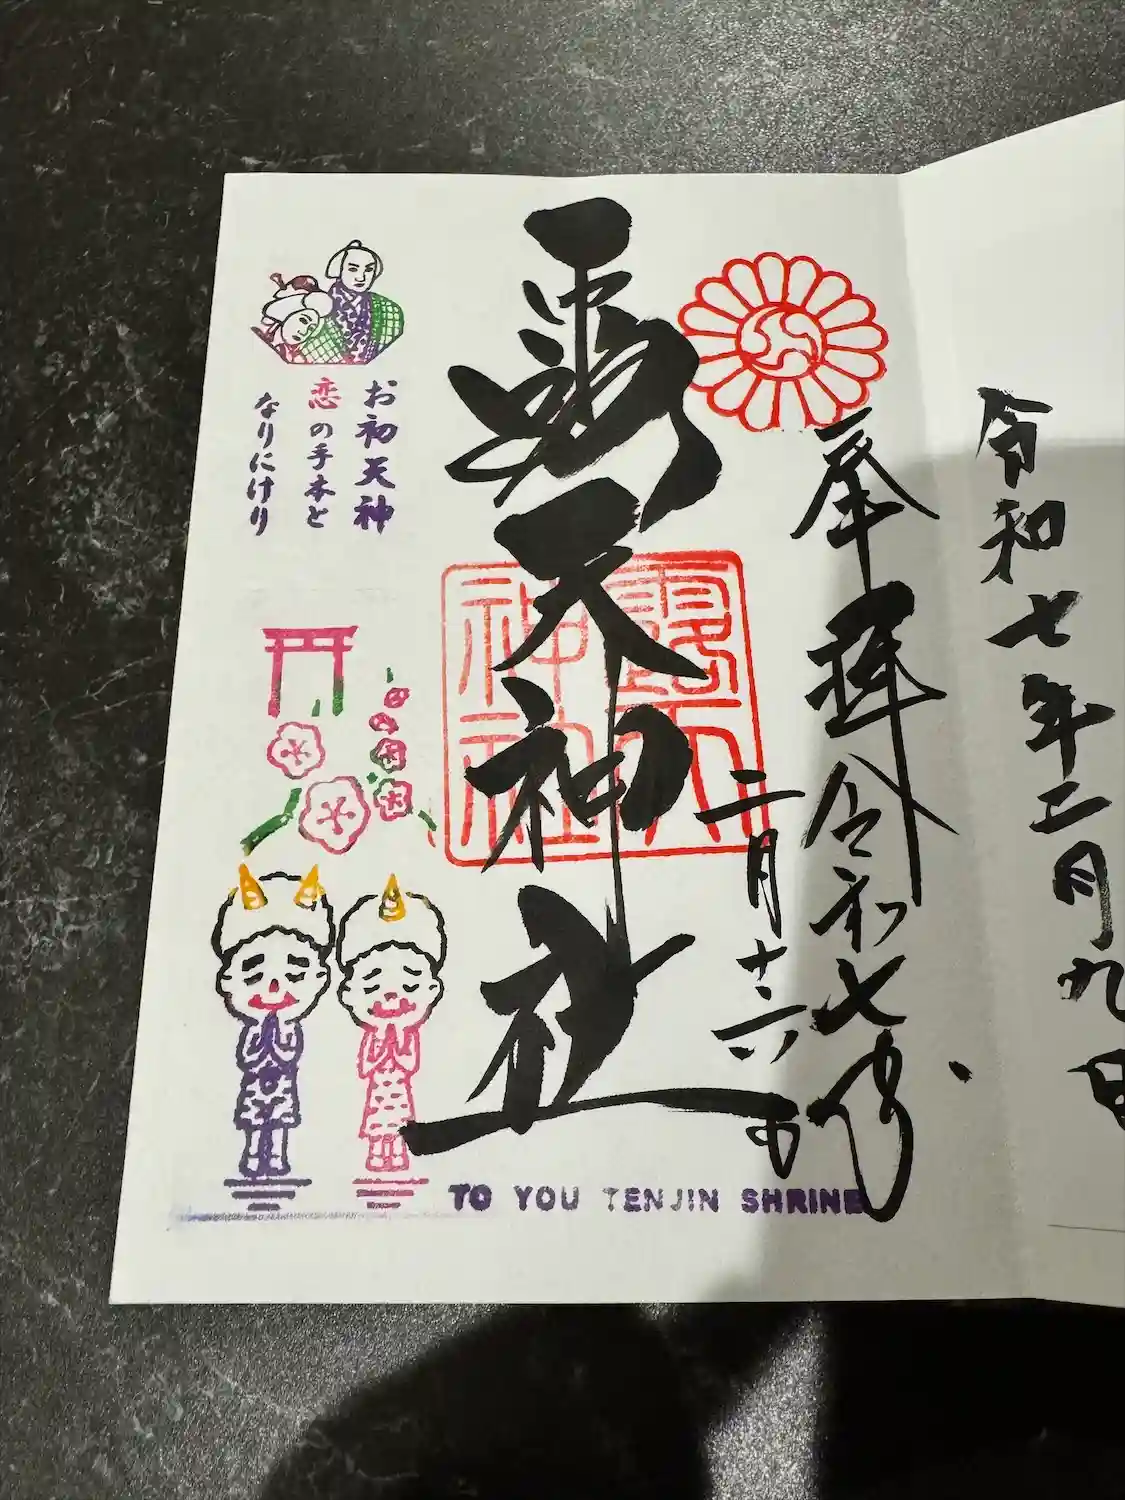 令和七年二月九日
奉拝 令和七年
二月十六日
露天神社
露天
神社
お初天神
恋の手本と
なりにけり
TO YOU TENJIN SHRINE